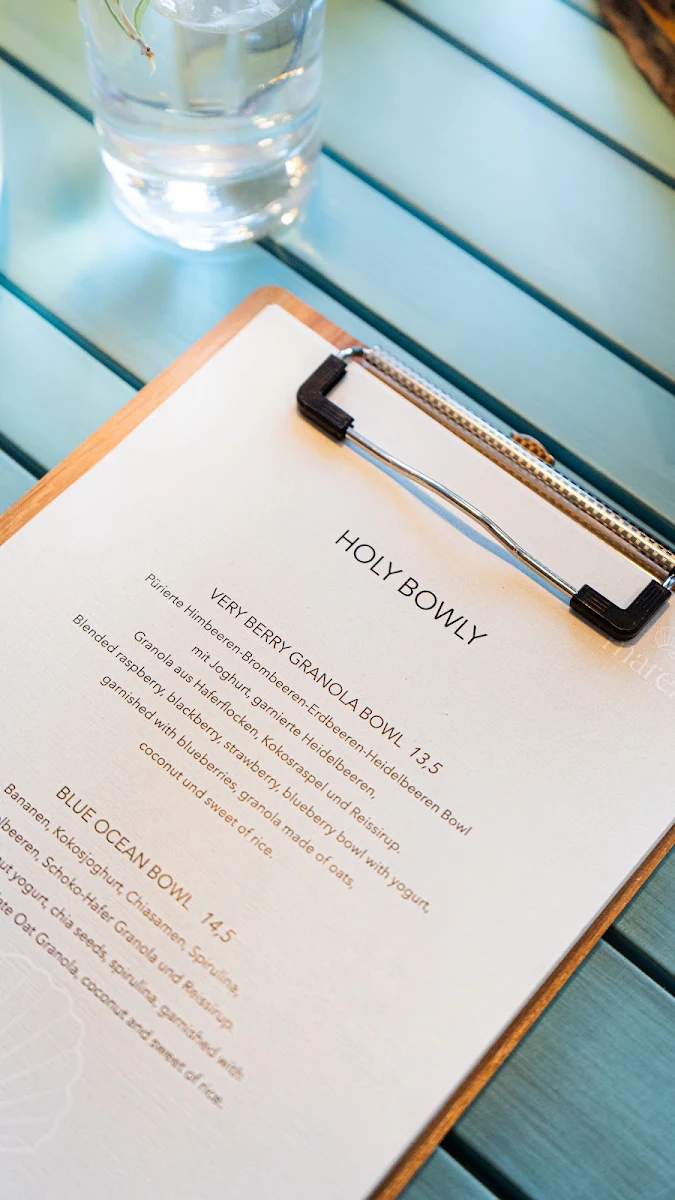 HOLY BOWLY
VERY BERRY GRANOLA BOWL 13,5
Pürierte Himbeeren-Brombeeren-Erdbeeren-Heidelbeeren Bowl
mit Joghurt, garnierte Heidelbeeren,
Granola aus Haferflocken, Kokosraspel und Reissirup.
Blended raspberry, blackberry, strawberry, blueberry bowl with yogurt,
garnished with blueberries, granola made of oats,
coconut und sweet of rice.
BLUE OCEAN BOWL 14,5
Bananen, Kokosjoghurt, Chiasamen, Spirulina,
Schoko-Hafer Granola und Reissirup.
yogurt, chia seeds, spirulina, garnished with
Oat Granola, coconut and sweet of rice.